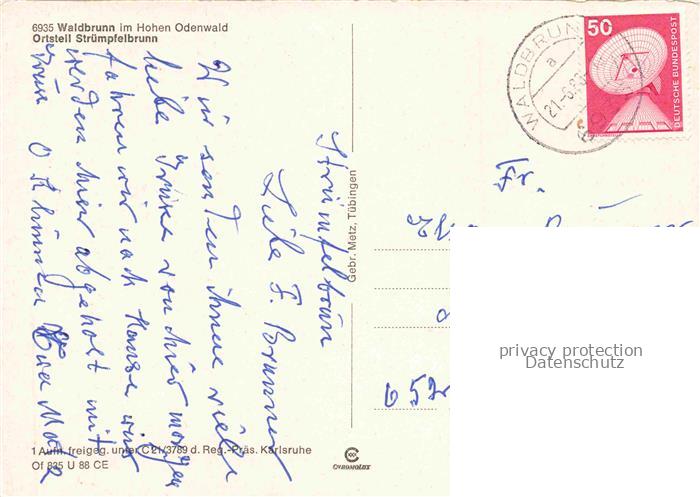 6935 Waldbrunn im Hohen Odenwald
Ortsteil Strümpfelbrunn
Strümpfelbrun
Liebe F. Brunner
Wir senden ihnen viele
liebe Grüße von hier morgen
fahren wir nach Hause wir
werden hier abgeholt mit
Gebr. Metz, Tübingen
1 Aufn. freigeg. unter C 21/3789 d. Reg.-Präs. Karlsruhe
Of 835 U 88 CE
CHROMOLUX
WALDBRUNN
a
21.-6.80
50
DEUTSCHE BUNDESPOST
Fr.
privacy protection
Datenschutz